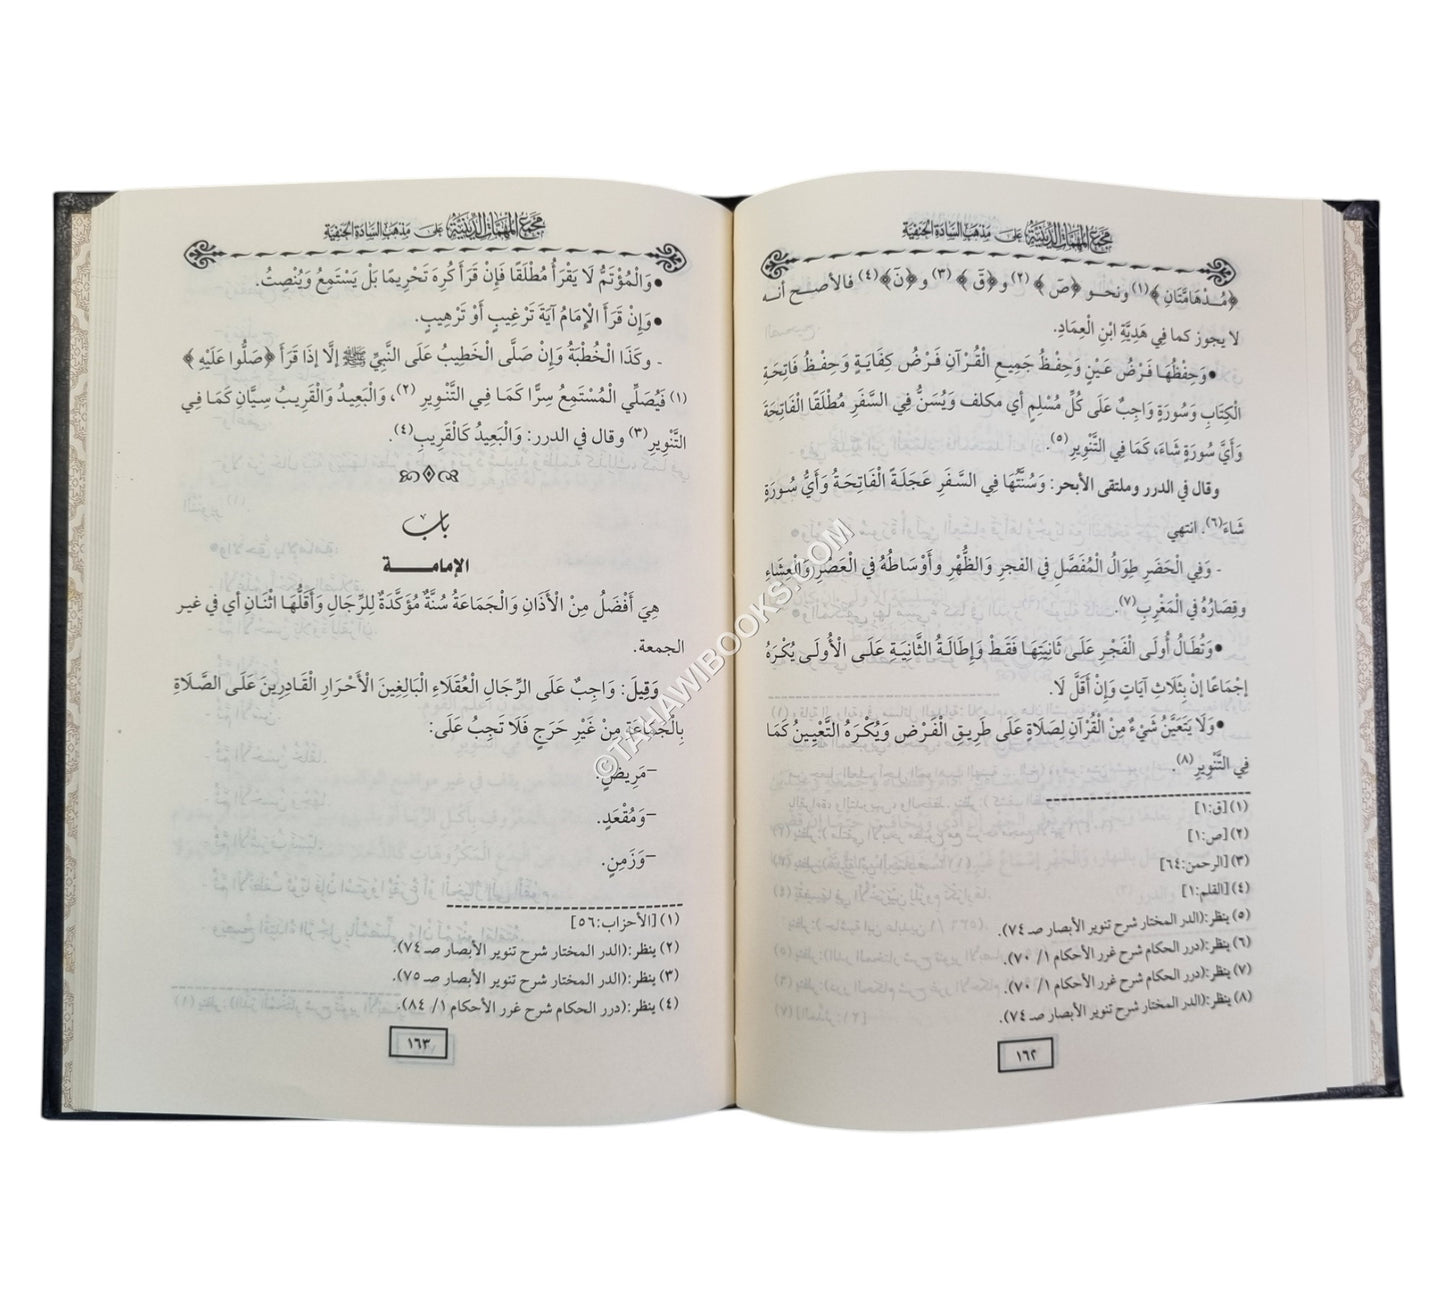 مجمع المهمات الدينية على مذهب السادة الحنفية
﴿مُدْهَامَّتَانِ﴾(١) ونحو ﴿صَ﴾(٢) و﴿قَ﴾(٣) و﴿نَ﴾(٤) فالأصح أنه
لا يجوز كما فِي هَدِيَّةِ ابْنِ الْعِمَادِ.
•وَحِفْظُهَا فَرْضُ عَيْنٍ وَحِفْظُ جَمِيعِ الْقُرْآنِ فَرْضُ كِفَايَةٍ وَحِفْظُ فَاتِحَةِ
الْكِتَابِ وَسُورَةٍ وَاجِبٌ عَلَى كُلِّ مُسْلِمٍ أي مكلف وَيُسَنُّ فِي السَّفَرِ مُطْلَقًا الْفَاتِحَةَ
وَأَيَّ سُورَةٍ شَاءَ، كَمَا فِي التَّنْوِيرِ(٥).
وقال في الدرر وملتقى الأبحر: وَسُنَّتُهَا فِي السَّفَرِ عَجَلَةً الْفَاتِحَةُ وَأَيُّ سُورَةٍ
شَاءَ(٦). انتهي
- وَفِي الْحَضَرِ طِوَالُ الْمُفَصَّلِ في الفجرِ وَالظُّهْرِ وَأَوْسَاطُهُ فِي الْعَصْرِ وَالْعِشَاءِ
وقِصَارُهُ فِي الْمَغْرِبِ(٧).
•وَتُطَالُ أُولَى الْفَجْرِ عَلَى ثَانِيَتِهَا فَقَطْ وَإِطَالَةُ الثَّانِيَةِ عَلَى الْأُولَى يُكْرَهُ
إجْمَاعًا إنْ بِثَلَاثِ آيَاتٍ وَإِنْ أَقَلَّ لَا.
•وَلَا يَتَعَيَّنُ شَيْءٌ مِنَ الْقُرْآنِ لِصَلَاةٍ عَلَى طَرِيقِ الْفَرْضِ وَيُكْرَهُ التَّعْيِينُ كَمَا
فِي التَّنْوِيرِ(٨).
(١) [ق:١]
(٢) [ص:١]
(٣) [الرحمن:٦٤]
(٤) [القلم:١]
(٥) ينظر:(الدر المختار شرح تنوير الأبصار صـ ٧٤).
(٦) ينظر:(درر الحكام شرح غرر الأحكام ١/ ٧٠).
(٧) ينظر:(درر الحكام شرح غرر الأحكام ١/ ٧٠).
(٨) ينظر:(الدر المختار شرح تنوير الأبصار صـ ٧٤).
١٦٢
مجمع المهمات الدينية على مذهب السادة الحنفية
•وَالْمُؤْتَمُّ لَا يَقْرَأُ مُطْلَقًا فَإِنْ قَرَأَ كُرِهَ تَحْرِيمًا بَلْ يَسْتَمِعُ وَيُنْصِتُ.
•وَإِنْ قَرَأَ الْإِمَامُ آيَةَ تَرْغِيبٍ أَوْ تَرْهِيبٍ.
- وكَذَا الْخُطْبَةُ وَإِنْ صَلَّى الْخَطِيبُ عَلَى النَّبِيِّ ﷺ إلَّا إذَا قَرَأَ ﴿صَلُّوا عَلَيْهِ﴾
(١) فَيُصَلِّي الْمُسْتَمِعُ سِرًّا كَمَا فِي التَّنْوِيرِ(٢)، وَالْبَعِيدُ وَالْقَرِيبُ سِيَّانِ كَمَا فِي
التَّنْوِيرِ(٣) وقال في الدرر: وَالْبَعِيدُ كَالْقَرِيبِ(٤).
باب
الإمامة
هِيَ أَفْضَلُ مِنْ الْأَذَانِ وَالْجَمَاعَةُ سُنَّةٌ مُؤَكَّدَةٌ لِلرِّجَالِ وَأَقَلُّهَا اثْنَانِ أي في غير
الجمعة.
وَقِيلَ: وَاجِبٌ عَلَى الرِّجَالِ الْعُقَلَاءِ الْبَالِغِينَ الْأَحْرَارِ الْقَادِرِينَ عَلَى الصَّلَاةِ
بِالْجَمَاعَةِ مِنْ غَيْرِ حَرَجٍ فَلَا تَجِبُ عَلَى:
–مَرِيضٍ.
–وَمُقْعَدٍ.
–وَزَمِنٍ.
(١) [الأحزاب:٥٦]
(٢) ينظر:(الدر المختار شرح تنوير الأبصار صـ ٧٤).
(٣) ينظر:(الدر المختار شرح تنوير الأبصار صـ ٧٥).
(٤) ينظر:(درر الحكام شرح غرر الأحكام ١/ ٨٤).
١٦٣
©TAHAWIBOOKS.COM